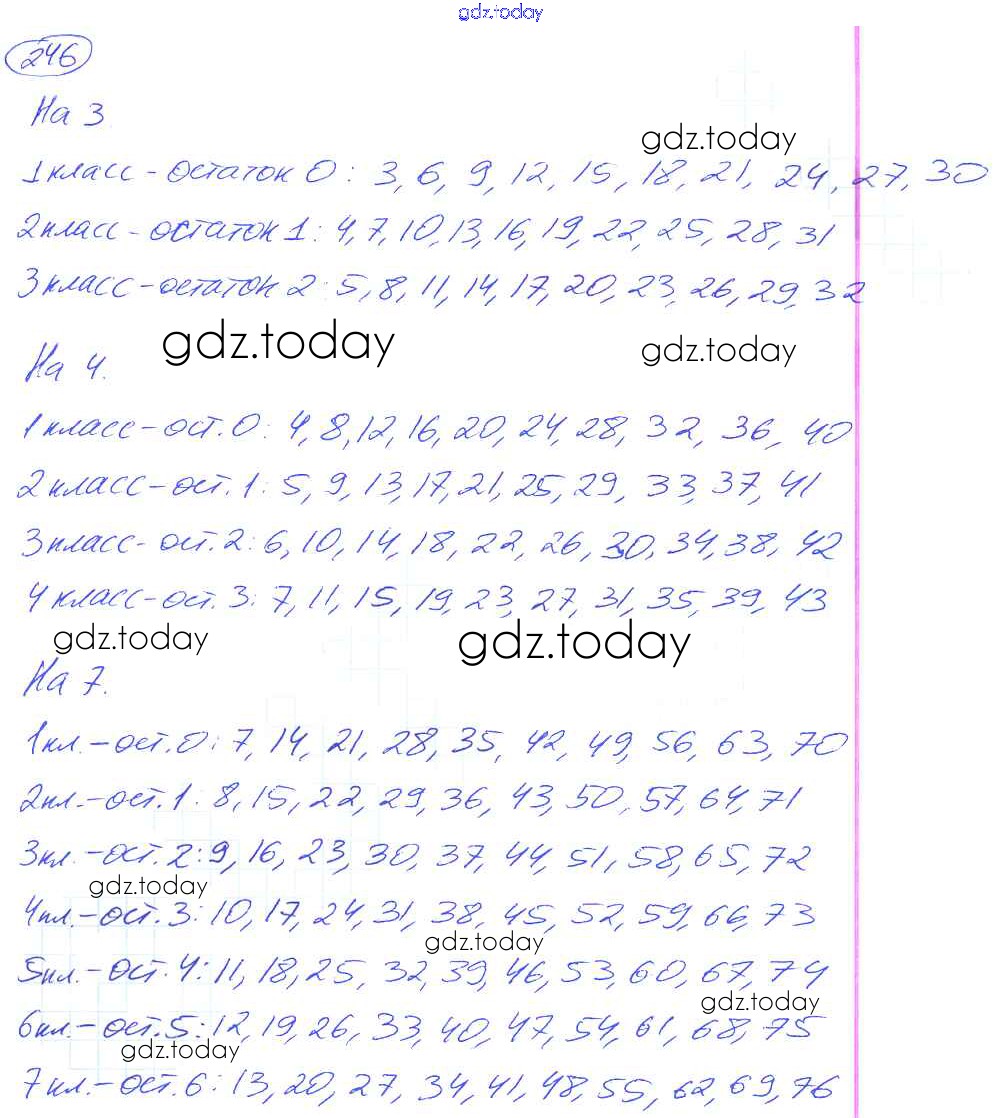 gdz.today
246
На 3
gdz.today
1 класс - остаток 0: 3, 6, 9, 12, 15, 18, 21, 24, 27, 30
2 класс - остаток 1: 4, 7, 10, 13, 16, 19, 22, 25, 28, 31
3 класс - остаток 2: 5, 8, 11, 14, 17, 20, 23, 26, 29, 32
gdz.today
gdz.today
На 4.
1 класс - ост. 0: 4, 8, 12, 16, 20, 24, 28, 32, 36, 40
2 класс - ост. 1: 5, 9, 13, 17, 21, 25, 29, 33, 37, 41
3 класс - ост. 2: 6, 10, 14, 18, 22, 26, 30, 34, 38, 42
4 класс - ост. 3: 7, 11, 15, 19, 23, 27, 31, 35, 39, 43
gdz.today
gdz.today
На 7.
1 кл. - ост. 0: 7, 14, 21, 28, 35, 42, 49, 56, 63, 70
2 кл. - ост. 1: 8, 15, 22, 29, 36, 43, 50, 57, 64, 71
3 кл. - ост. 2: 9, 16, 23, 30, 37, 44, 51, 58, 65, 72
gdz.today
4 кл. - ост. 3: 10, 17, 24, 31, 38, 45, 52, 59, 66, 73
gdz.today
5 кл. - ост. 4: 11, 18, 25, 32, 39, 46, 53, 60, 67, 74
gdz.today
6 кл. - ост. 5: 12, 19, 26, 33, 40, 47, 54, 61, 68, 75
gdz.today
7 кл. - ост. 6: 13, 20, 27, 34, 41, 48, 55, 62, 69, 76